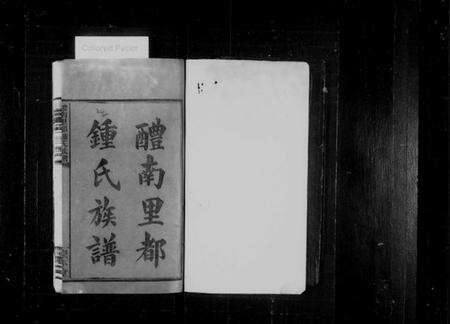 Colored Paper
醴南里都
鍾氏族譜